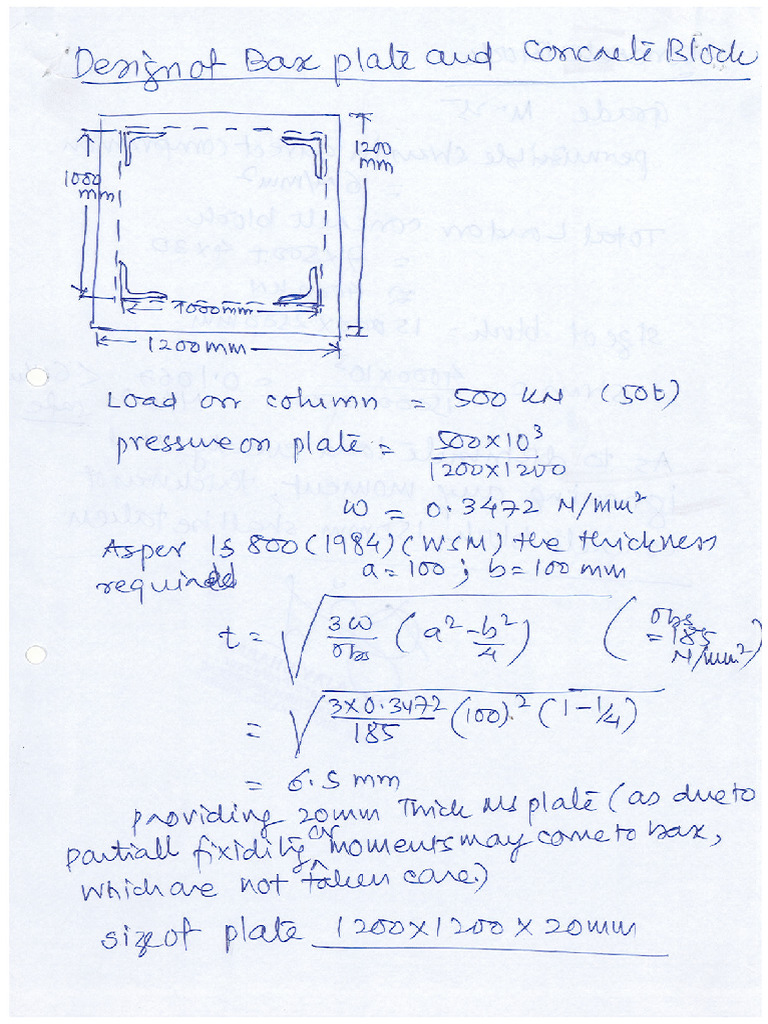 Design of Base plate and Concrete Block
1200
mm
1000
mm
1000mm
1200mm
Load on column = 500 kN (50t)
pressure on plate = 500×10³
1200×1200
ω = 0.3472 N/mm²
As per IS 800 (1984) (WSM) the thickness
required a = 100 ; b = 100 mm
t = √ 3ω/σbs (a² - b²/4) (σbs = 185 N/mm²)
= √ 3×0.3472/185 (100)² (1-1/4)
= 6.5 mm
providing 20mm Thick MS plate (as due to
partiall fixidity or moments may come to base,
which are not taken care.)
size of plate 1200×1200×20mm